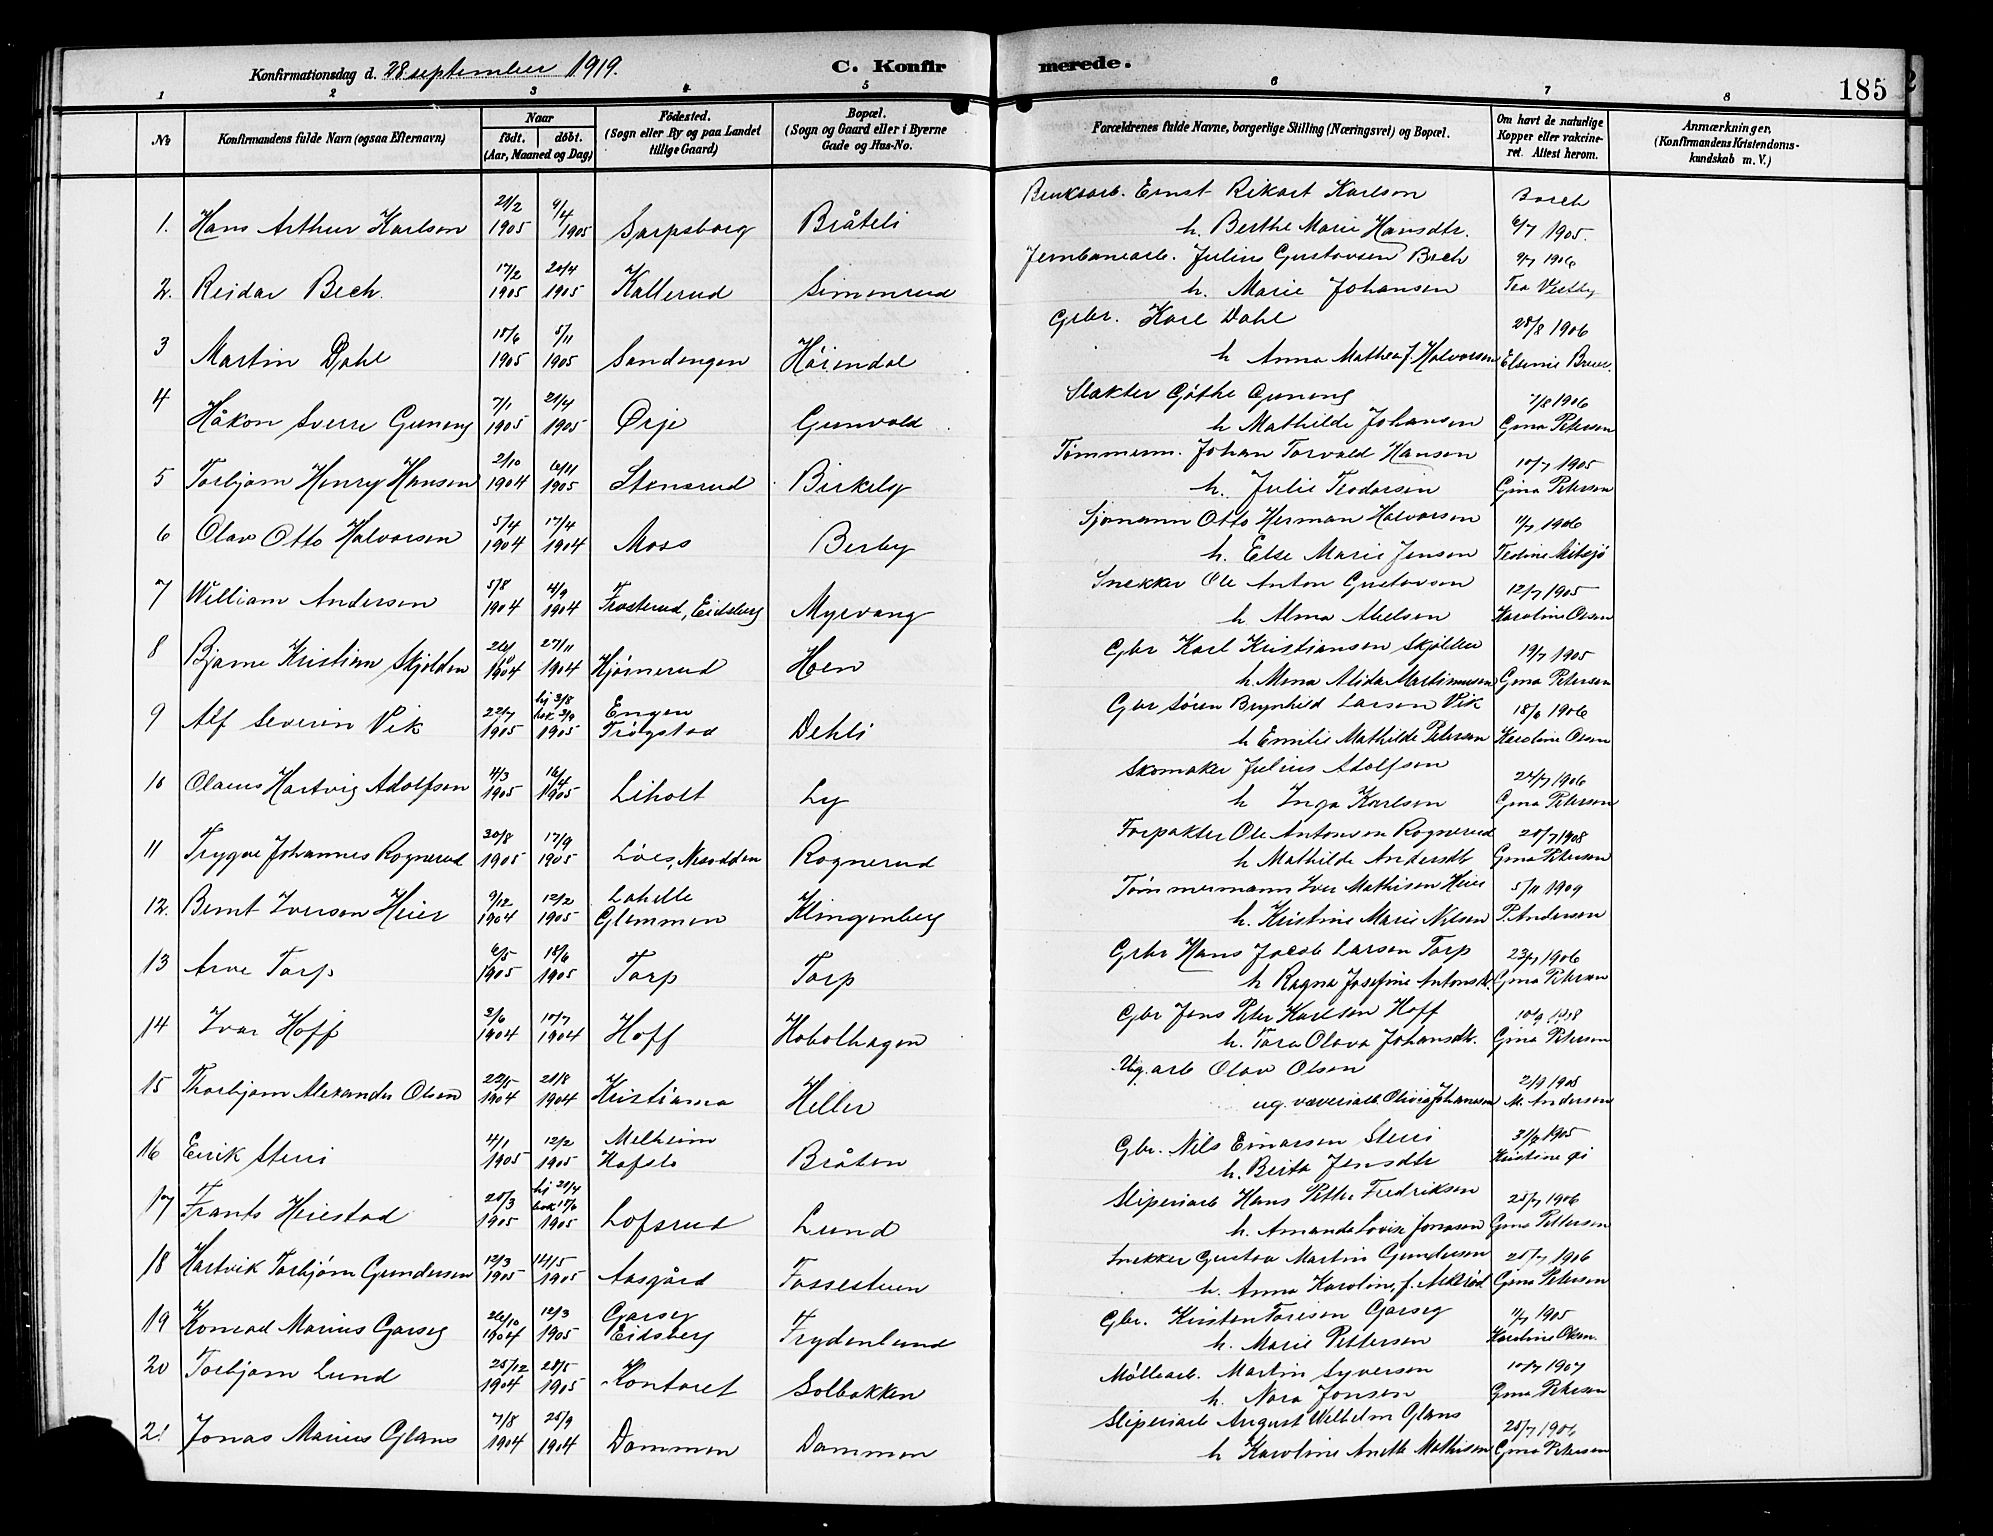 Konfirmationsdag d. 28 september 1919.
C. Konfirmerede.
185
1 2 3 4 5 6 7 8
No
Konfirmandens fulde Navn (ogsaa Efternavn)
Naar
født. døbt.
(Aar, Maaned og Dag)
Fødested.
(Sogn eller By og paa Landet
tillige Gaard)
Bopæl.
(Sogn og Gaard eller i Byerne
Gade og Hus-No.
Forældrenes fulde Navne, borgerlige Stilling (Næringsvei) og Bopæl.
Om havt de naturlige
Kopper eller vakcine-
ret. Attest herom.
Anmærkninger,
(Konfirmandens Kristendoms-
kundskab m. V.)
1. Hans Arthur Karlson 21/2 1905 9/4 1905 Sarpsborg Bråteli
Bruksarb. Ernst Rikart Karlson
h. Berthe Marie Hansdtr. 6/7 1905.
2. Reidar Bech 17/2 1905 20/4 1905 Kallerud Simonrud
Jernbanearb. Julius Gustavsen Bech 9/7 1906
h. Marie Johansen Tea Vestby
3 Martin Dahl 15/6 1905 5/11 1905 Sandengen Høiendal
Grbr. Karl Dahl 28/8 1906
h Anna Mathea f. Halvorsen
4 Håkon Sverre Guneng 7/1 1905 21/4 1905 Ørje Grunvold
Slakter Gøthe Guneng 7/8 1906
h Mathilde Johansen Gina Petersen
5 Torbjørn Henry Hansen 2/10 1904 6/11 1905 Stensrud Birkely
Tømmerm. Johan Torvald Hanson 10/7 1905
h. Julie Teodorsen Gina Petersen
6 Olav Otto Halvorsen 5/4 1904 17/4 1904 Moss Berby
Sjømann Otto Herman Halvorsen 11/7 1906
h. Else Marie Jenson
7 William Anderson 5/8 1904 4/9 1904 Frosterud, Eidsberg Myrvang
Snekker Ole Anton Gustavson 12/7 1905
h Alma Abelson Karoline Olsen
8 Bjarne Kristian Skjolden 1904 27/11 1904 Hjørnerud Hoen
Gbr Karl Kristiansen Skjolden 19/7 1905
h. Mena Alida Martinusen Gina Petersen
9 Alf Severin Vik 22/7 1905 hj 3/8 bek 3/9 1905 Engen Trøgstad Dehli
Gbr Søren Brynhild Larsen Vik 18/6 1906
h Emilie Mathilde Petersen Karoline Olsen
10 Olaus Hartvig Adolfson 4/3 1905 16/4 1905 Liholt Ly
Skomaker Julius Adolfson 24/7 1906
h Inga Karlson Gina Petersen
11 Trygve Johannes Rognerud 30/8 1905 17/9 1905 Løes, Nesodden Rognerud
Forpakter Ole Antonsen Rognerud 20/7 1908
h Mathilde Andersdtr Gina Petersen
12. Bernt Iverson Heier 9/12 1904 12/2 1905 Lahelle Glemmen Klingenberg
Tømmermann Iver Mathison Heier 5/11 1909
h. Kristine Marie Nilsen P. Anderson
13 Arve Torp 6/5 1905 18/6 1905 Torp Torp
Grbr Hans Jacob Larsen Torp 23/7 1906
h Ragna Josefine Antonsdtr. Gina Petersen
14 Ivar Hoff 2/6 1904 10/7 1904 Hoff Hobolhagen
Gbr Jens Peter Karlson Hoff
h. Tora Olava Johansdtr. Gina Petersen
15 Thorbjørn Alexander Olsen 22/5 1904 21/8 1904 Kristiania Heller
Ug. arb Olav Olson 2/9 1908
ug. væveriarb. Olivia Johanson M. Anderson
16 Eirik Sterri 4/1 1905 12/2 1905 Melheim Hafslo Bråten
Gbr. Nils Einarsen Sterri 1905
h. Berta Jensdtr
17 Frants Heiestad 25/3 1905 hj 21/4 1905 Lofsrud Lund
Sliperiarb Hans Petter Fredriksen 25/7 1906
h. Amanda Lovise Jonasen Gina Pettersen
18 Hartvik Torbjørn Gundersen 12/3 1905 14/5 1905 Aasgård Fossestuen
Snekker Gustav Martin Gundersen 25/7 1906
h. Anna Karolin, f. Askerød Gina Petersen
19 Konrad Marius Garseg 26/10 1904 12/3 1905 Garseg Eidsberg Frydenlund
Gbr. Kristen Toresen Garseg 11/7 1905
h. Marie Pettersen Karoline Olsen.
20 Torbjørn Lund 25/12 1904 28/5 1905 Kontoret Solbakken
Møllearb. Martin Syverson 10/7 1907
h. Nora Jonson Gina Petersen
21 Jonas Marius Glans 7/8 1904 25/9 1904 Dammen Dammen
Sliperiarb August Wilhelm Glans 25/7 1906
h Karoline Anette Mathisen Gina Petersen